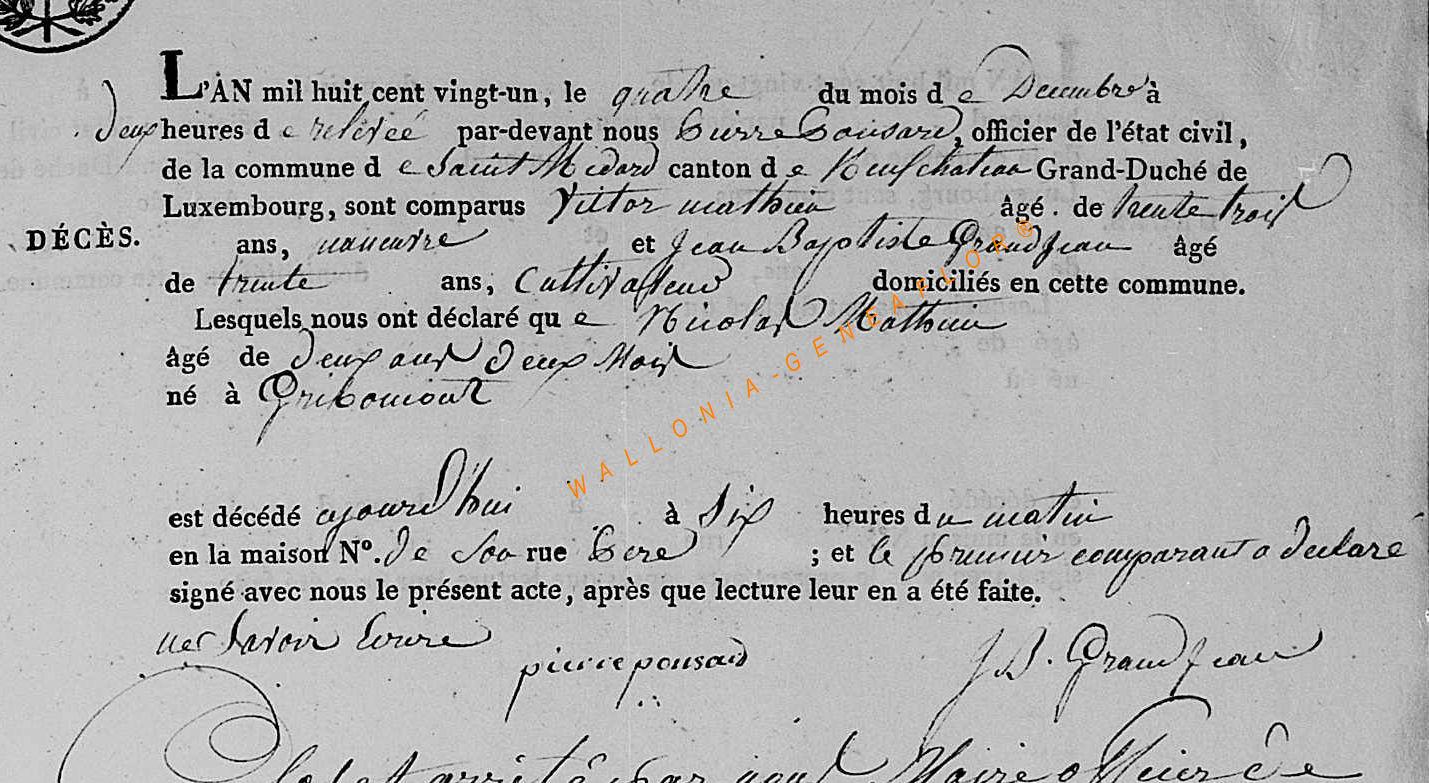 L'AN mil huit cent vingt-un, le quatre du mois de Decembre à
deux heures de relevée par-devant nous Pierre Ponsard, officier de l'état civil,
de la commune de Saint Médard canton de Neufchateau Grand-Duché de
Luxembourg, sont comparus Victor mathieu âgé. de trente trois
DÉCÈS.
ans, manœuvre et Jean Baptiste Grandjean âgé
de trente ans, Cultivateur domiciliés en cette commune.
Lesquels nous ont déclaré que Nicolas Mathieu
âgé de deux ans deux Mois
né à Gribomont
est décédé ajourd'hui à Six heures du matin
en la maison No. de Son rue Pere ; et le premier comparant a declaré
signé avec nous le présent acte, après que lecture leur en a été faite.
ne Savoir Ecrire
pierre ponsard J B. Grandjean
Clos et arrêté par nous Maire officier de
WALLONIA-GENEAFLOR®